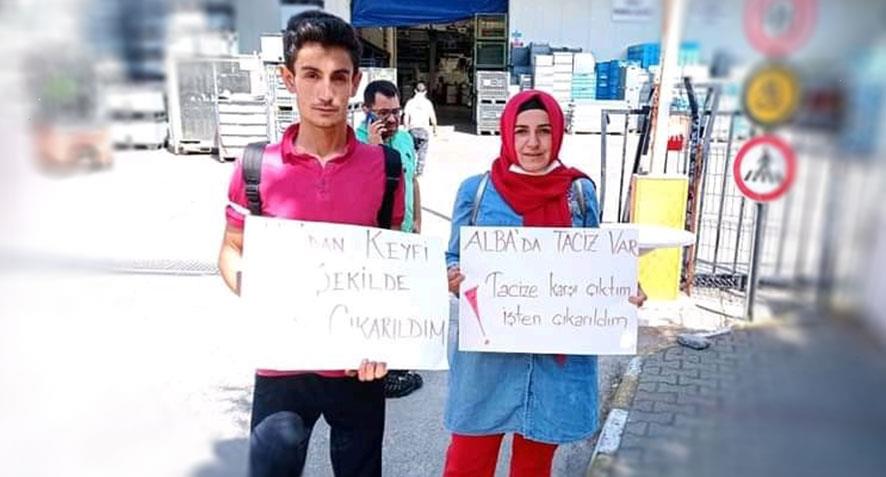 'DAN KEYFİ
ŞEKİLDE
ÇIKARILDIM
ALBA'DA TACİZ VAR
Tacize karşı çıktım
! işten çıkarıldım